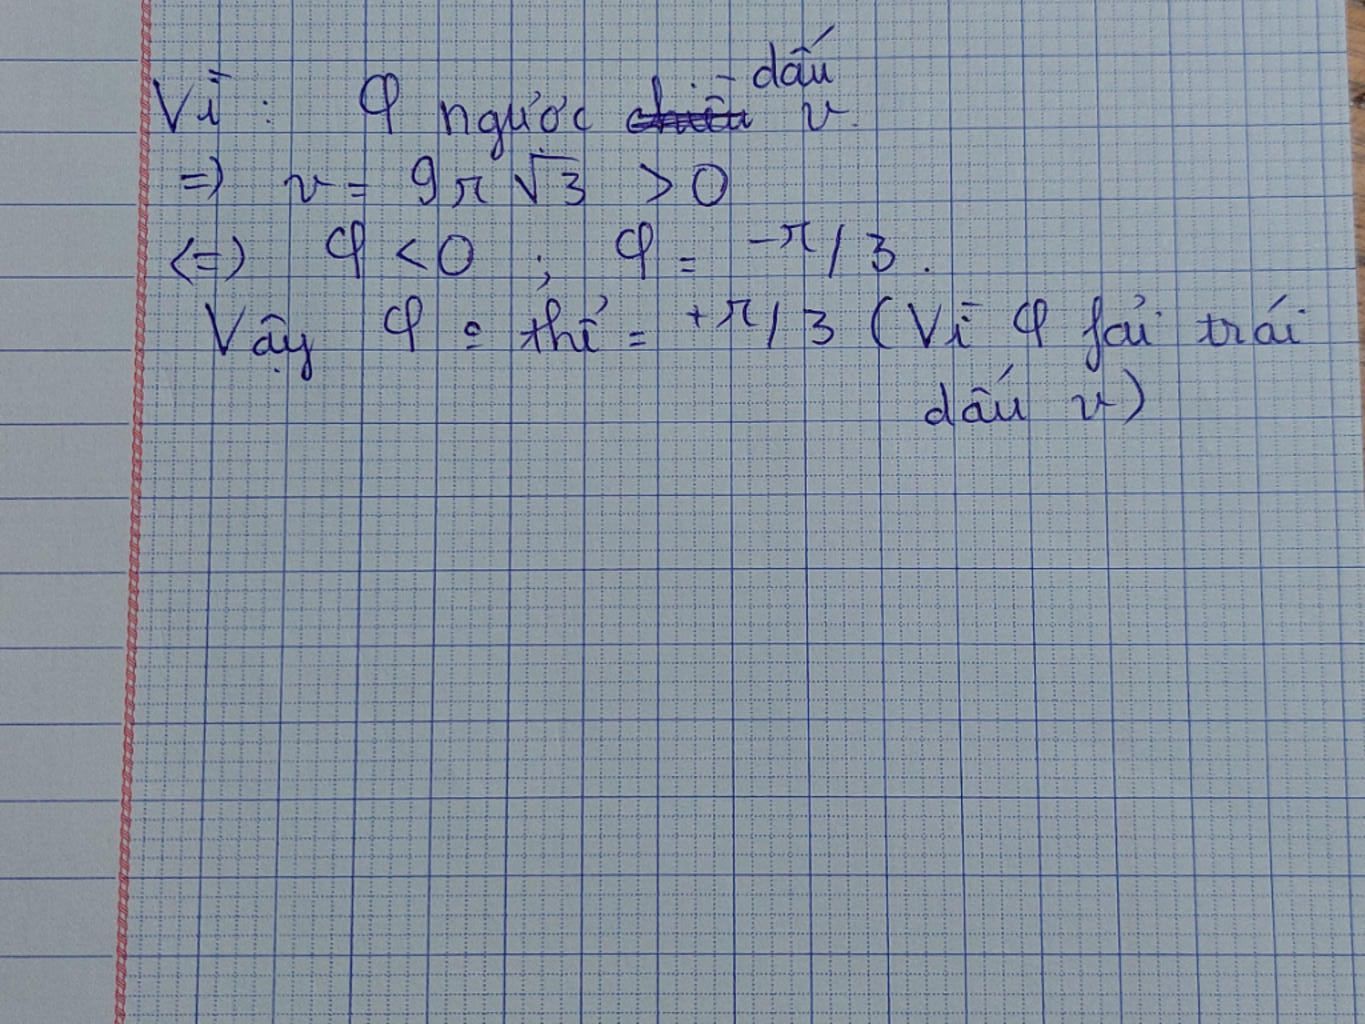 Vì: φ ngược dấu v.
=> v = 9π√3 > 0
<=> φ < 0 ; φ = -π/3.
Vậy φ = thế = +π/3 (Vì φ fải trái
dấu v)